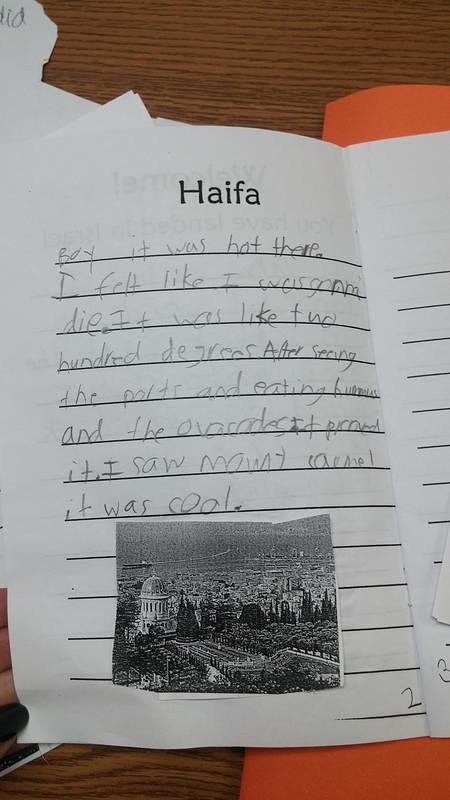 did
Welcome!
You have landed in Israel
Haifa
Boy it was hot there.
I felt like I was gonna
die. It was like two
hundred degrees After seeing
the ports and eating hummus
and the It
it. I saw mount carmel
it was cool.
2
3